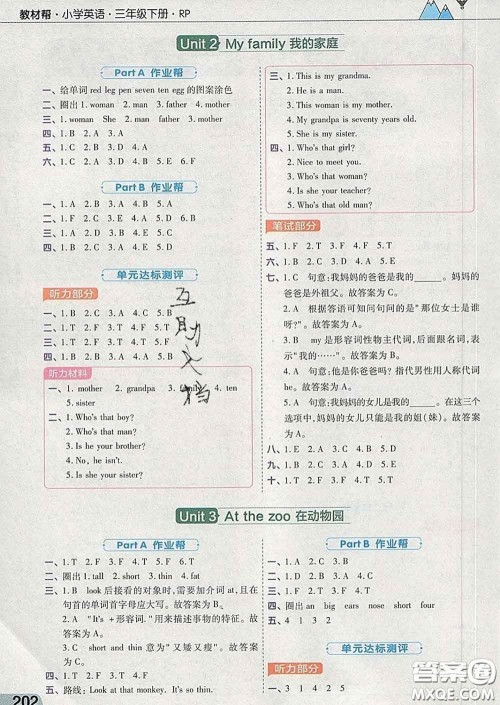 教材帮·小学英语·三年级下册·RP
Unit 2 My family 我的家庭
Part A 作业帮
一、给单词 red leg pen seven ten egg 的图案涂色
二、圈出 1. woman 2. man 3. father 4. mother
三、1. woman She 2. man 3. father 4. mother
四、1. B 2. A 3. A
五、1. C 2. B 3. D 4. A
六、1. B 2. D 3. C 4. A 5. E 6. F
Part B 作业帮
一、1. B 2. A 3. A 4. B 5. A
二、1. T 2. F 3. T 4. F 5. T
三、1. C 2. D 3. A 4. B
四、1. C 2. B 3. D 4. A 5. E
单元达标测评
听力部分
一、1. B 2. A 3. A 4. A 5. B
二、1. A 2. B 3. A 4. A 5. A
三、1. A 2. B 3. C 4. C 5. B
四、1. B 2. A 3. A 4. B 5. B
听力材料
一、1. mother 2. grandpa 3. family 4. ten
5. sister
二、1. Who's that boy?
2. Who's that man?
3. Is he your brother?
4. No, he isn't.
5. Is she your sister?
三、1. This is my grandma.
2. He is a man.
3. This woman is my mother.
4. My grandpa is seventy years old.
5. She is my sister.
四、1. Who's that girl?
2. Nice to meet you.
3. Who's that woman?
4. Is she your teacher?
5. Who's that old man?
笔试部分
五、1. F 2. T 3. F 4. T 5. T
六、1. B 2. C 3. A 4. B 5. B
七、1. C 句意：我妈妈的爸爸是我的____。妈妈的
爸爸是外祖父。故答案为 C。
2. A 根据答语可知问句问的是“那位女士是谁
呀？”。故答案为 A。
3. B my 是形容词性物主代词，后面跟名词，表
示“我的……”。故答案为 B。
4. C 句意：他是你爸爸吗？指代男性用人称代词
he。故答案为 C。
5. A 句意：我妈妈的女儿是我的____。在这三个
选项中，我妈妈的女儿只能是我的姐(妹)。故
答案为 A。
八、1. E 2. D 3. A 4. B 5. C
九、1. T 2. F 3. F 4. T 5. T
互助文档
Unit 3 At the zoo 在动物园
Part A 作业帮
一、1. T 2. F 3. F 4. F 5. F 6. T
二、圈出 1. tall 2. short 3. thin 4. fat
三、1. B look 后接看的对象时，需要加介词 at，且在
句首的单词首字母应大写。故答案为 B。
2. A “It's + 形容词. ”用来描述事物的特征。故
答案为 A。
3. C short and thin 意为“又矮又瘦”。故答案
为 C。
四、1. T 2. F 3. T 4. F 5. F
五、路线：Look at that monkey. It's so thin.
Part B 作业帮
一、1. C 2. D 3. A 4. B
二、1. T 2. F 3. F 4. T
三、1. A 2. B 3. A 4. B 5. A
四、圈出 an big ears nose short four
五、4 1 3 5 2
单元达标测评
听力部分
一、3 1 4 2 5
202
答案圈
MXQE.COM